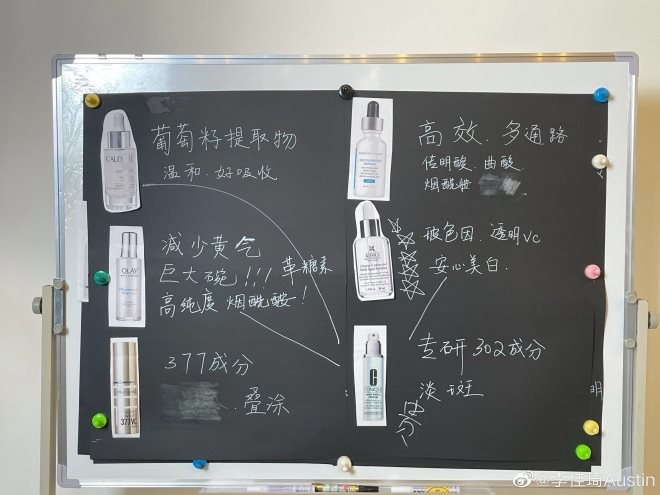 葡萄籽提取物
温和、好吸收
CAUDALÍE
减少黄气
巨大碗!!! 革糖素
高纯度 烟酰胺!
OLAY
377成分
叠涂
377VC
高效、多通路
传明酸、曲酸
烟酰胺
玻色因、透明VC
安心美白.
KIEHL'S
专研302成分
淡斑
CLINIQUE
明
@李佳琦Austin